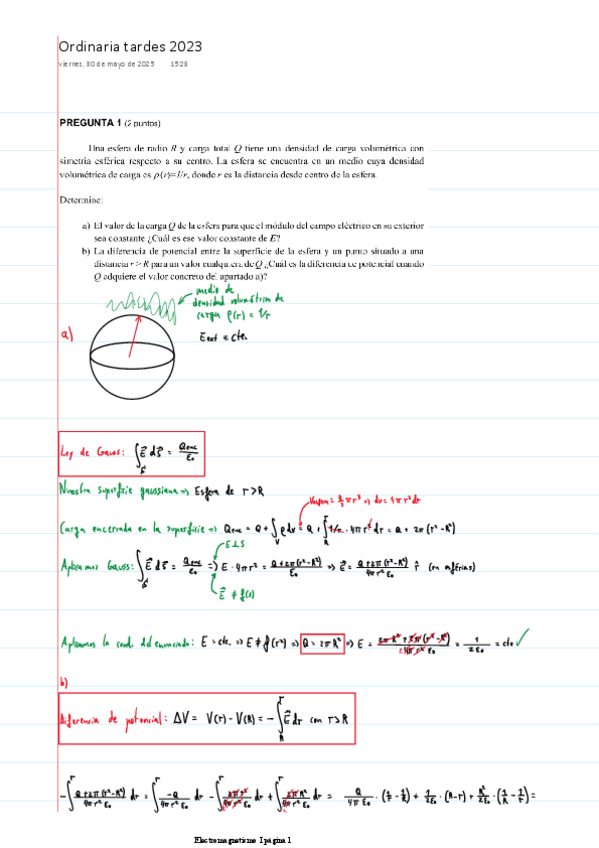 Ordinaria tardes 2023
viernes, 30 de mayo de 2025 15:23
PREGUNTA 1 (2 puntos)
Una esfera de radio R y carga total Q tiene una densidad de carga volumétrica con
simetría esférica respecto a su centro. La esfera se encuentra en un medio cuya densidad
volumétrica de carga es ρ(r)=1/r, donde r es la distancia desde centro de la esfera.
Determine:
a) El valor de la carga Q de la esfera para que el módulo del campo eléctrico en su exterior
sea constante ¿Cuál es ese valor constante de E?
b) La diferencia de potencial entre la superficie de la esfera y un punto situado a una
distancia r > R para un valor cualquiera de Q ¿Cuál es la diferencia de potencial cuando
Q adquiere el valor concreto del apartado a)?
medio de
densidad volumétrica de
carga ρ(r) = 1/r
a)
Eext = cte.
Ley de Gauss: ∫ E⃗ dS⃗ = Qenc/ε₀
Nuestra superficie gaussiana => Esfera de r>R
Vesfera = 4/3 π r³ => dv = 4πr² dr
Carga encerrada en la superficie => Qenc = Q + ∫ᵥ ρ dv = Q + ∫ 1/r · 4πr² dr = Q + 2π(r²-R²)
E⊥S
Aplicamos Gauss: ∫ E⃗ dS⃗ = Qenc/ε₀ => E · 4πr² = (Q+2π(r²-R²))/ε₀ => E⃗ = (Q+2π(r²-R²))/(4πr² ε₀) r̂ (en esféricas)
E⃗ ≠ f(s)
Aplicamos la cond. del enunciado: E = cte. => E ≠ f(r²) => Q = 2πR² => E = (2πR² + 2π(r²-R²))/(4πr² ε₀) = 1/(2ε₀) = cte ✓
b)
Diferencia de potencial: ΔV = V(r) - V(R) = -∫ E⃗ dr con r>R
-∫ (Q+2π(r²-R²))/(4πr² ε₀) dr = ∫ -Q/(4πr² ε₀) dr - ∫ 2πr²/(4πr² ε₀) dr + ∫ 2πR²/(4πr² ε₀) dr = Q/(4πε₀) · (1/r - 1/R) + 1/(2ε₀) · (R-r) + R²/(2ε₀) · (1/R - 1/r) =
Electromagnetismo I página 1